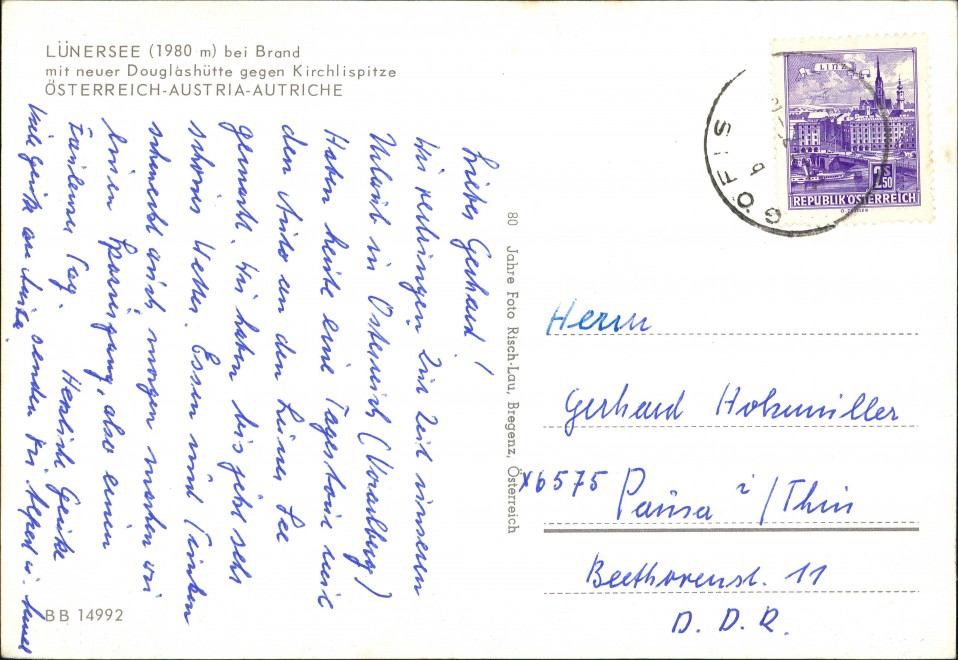 LÜNERSEE (1980 m) bei Brand
mit neuer Douglashütte gegen Kirchlispitze
ÖSTERREICH-AUSTRIA-AUTRICHE
Lieber Gerhard!
Wir verbringen zur Zeit unseren
Urlaub in Österreich (Vorarlberg)
Haben heute eine Tagestour mit
dem Auto an den Lüner See
gemacht. Wir haben bis jetzt sehr
schönes Wetter. Essen und Trinken
schmeckt auch morgen machen wir
einen
also einen
Faulenzer Tag. Herzliche Grüße
senden wir Alfred u.
Viele Grüße an Anita
80 Jahre Foto Risch-Lau, Bregenz, Österreich
BB 14992
LINZ
2S50
REPUBLIK ÖSTERREICH
GÖFIS
Herrn
Gerhard Holzmüller
X6575 Pausa i/Thür
Beethovenst. 11
D.D.R.